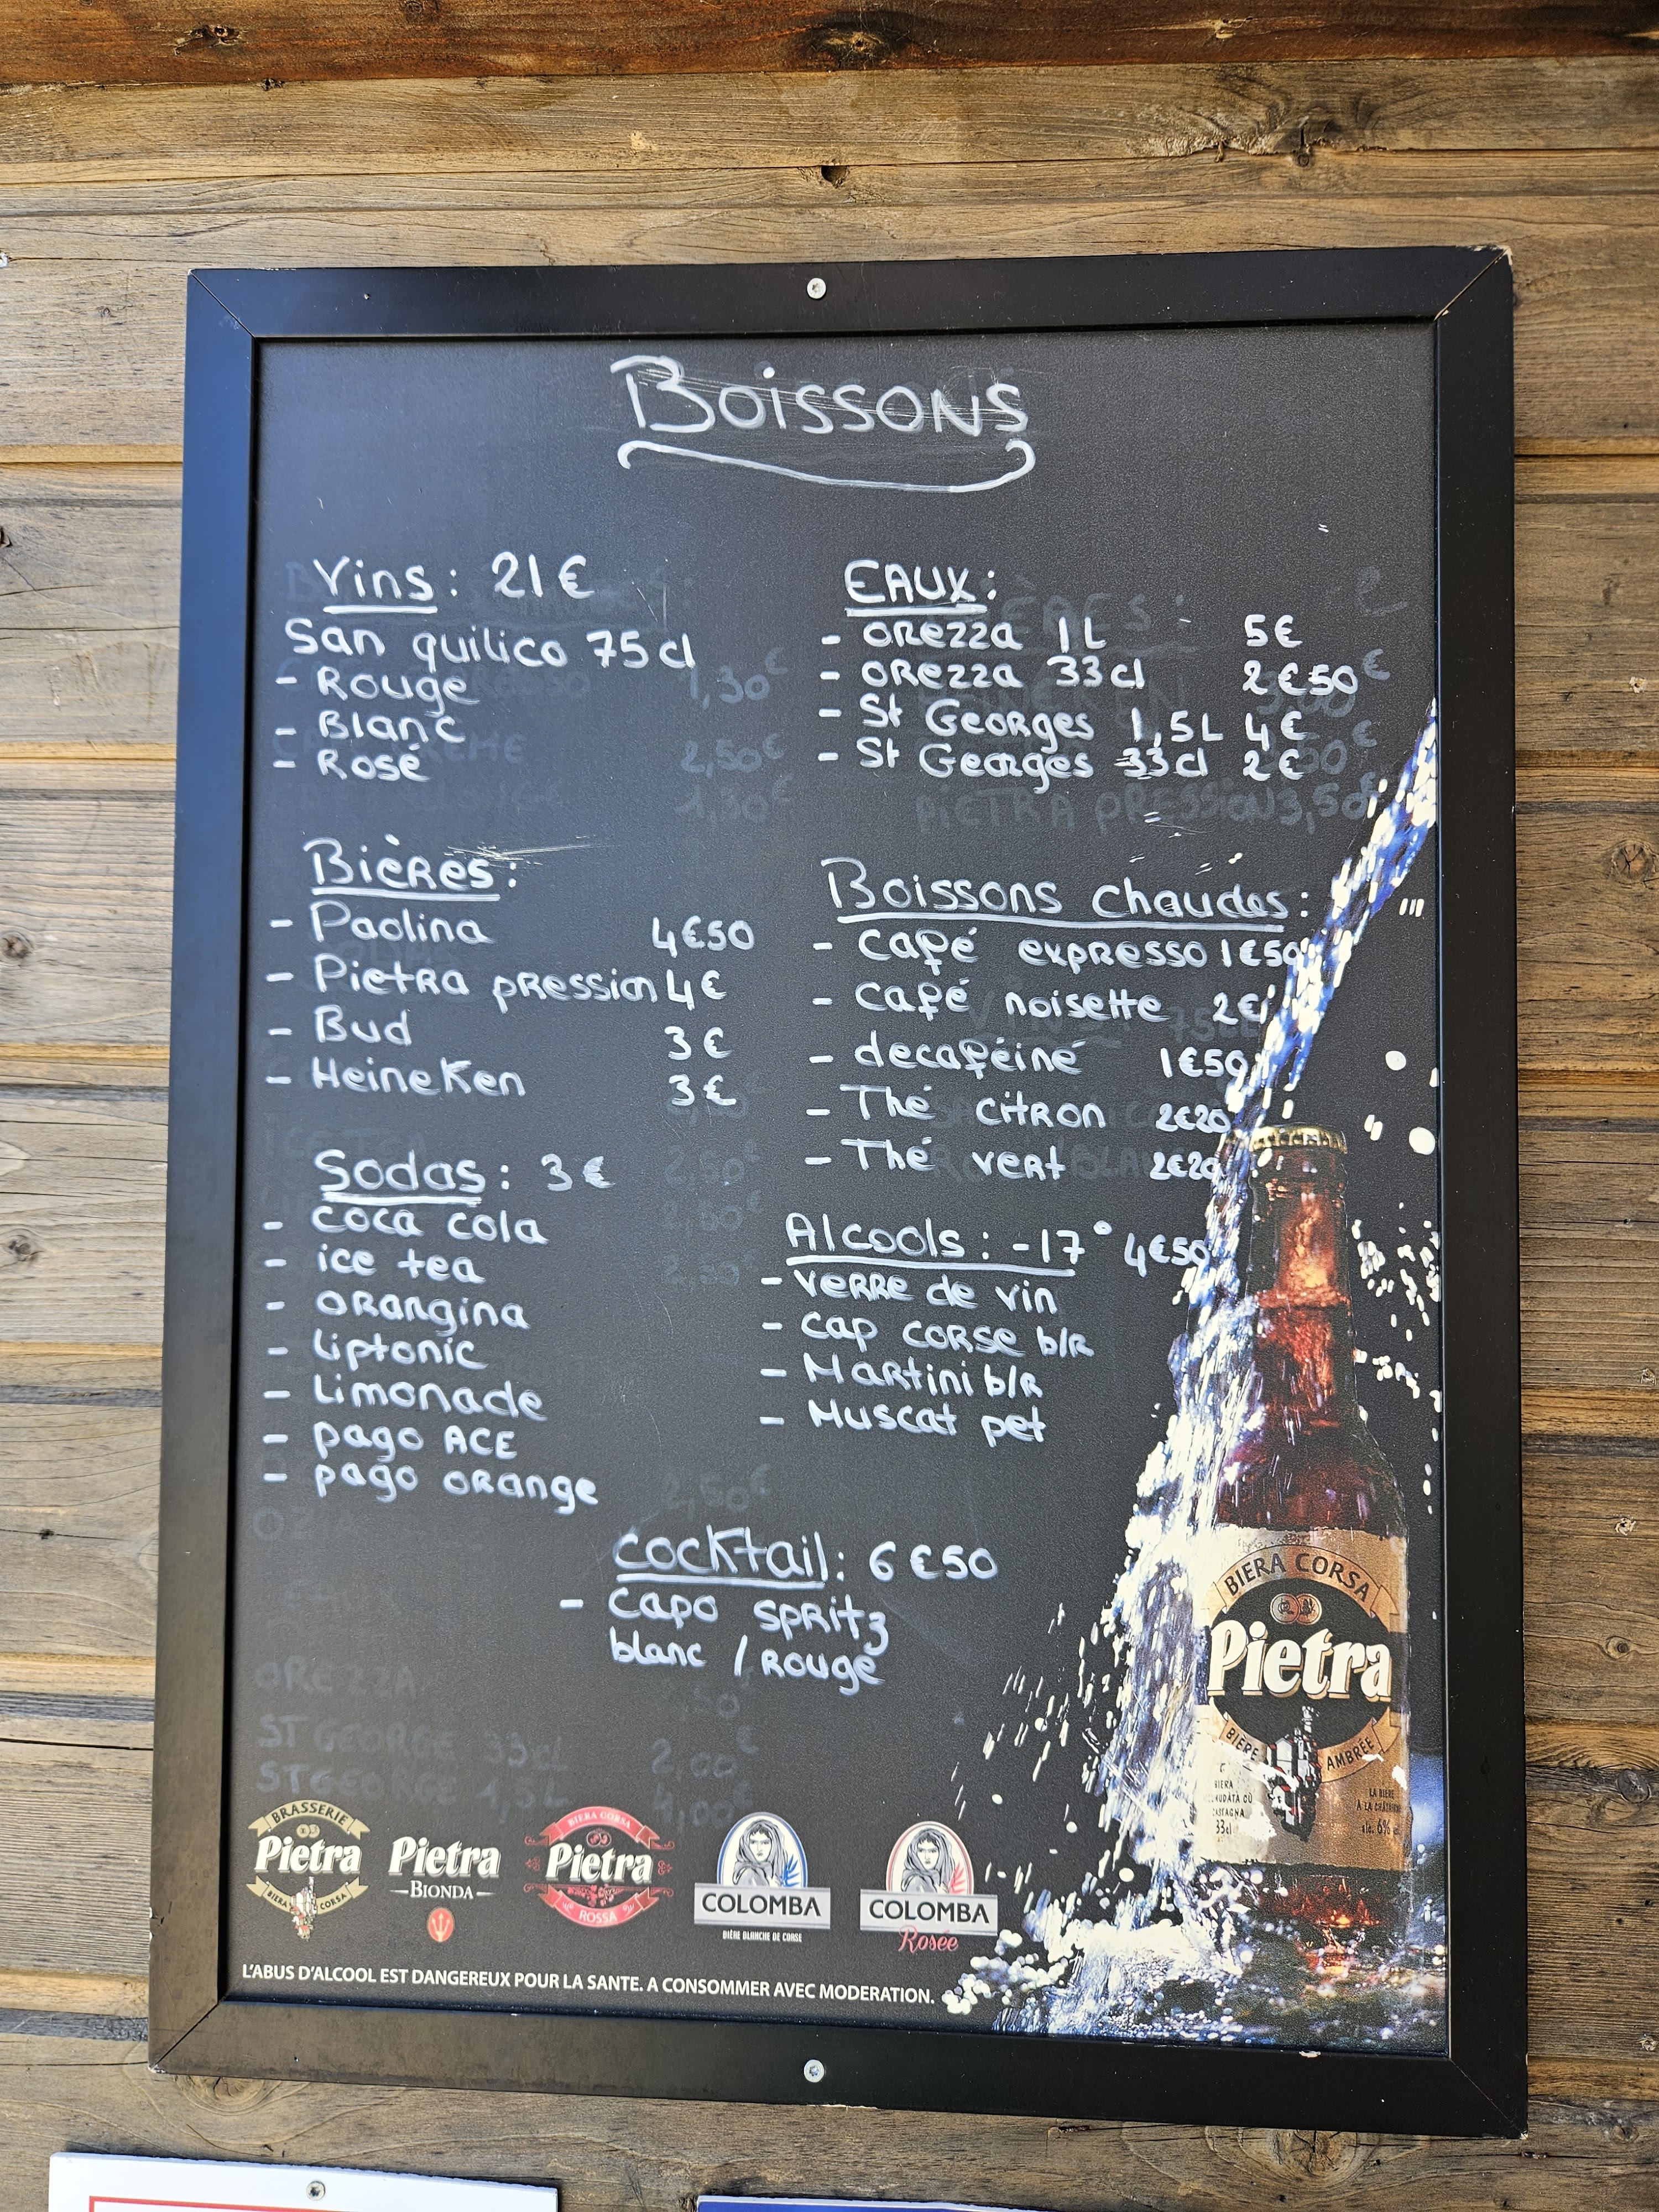 Boissons
Vins : 21€
San quilico 75cl
- Rouge
- Blanc
- Rosé
Bières :
- Paolina 4€50
- Pietra pression 4€
- Bud 3€
- Heineken 3€
Sodas : 3€
- coca cola
- ice tea
- orangina
- Liptonic
- Limonade
- pago ACE
- pago orange
EAUX :
- orezza 1L 5€
- orezza 33cl 2€50
- St Georges 1,5L 4€
- St Georges 33cl 2€
Boissons chaudes :
- café expresso 1€50
- café noisette 2€
- decaféiné 1€50
- Thé citron 2€20
- Thé vert 2€20
Alcools : -17° 4€50
- verre de vin
- cap corse b/R
- Martini b/R
- Muscat pet
cocktail : 6€50
- capo spritz
blanc / Rouge
OREZZA
ST GEORGE 33cl 2,00€
ST GEORGE 1,5L 4,00€
PIETRA PRESSION 3,50€
BIERA CORSA
Pietra
BIÈRE AMBRÉE
33cl
LA BIÈRE
À LA CHÂTAIGNE
alc. 6%
BRASSERIE
Pietra
BIERA CORSA
Pietra
BIONDA
BIERA CORSA
Pietra
ROSSA
COLOMBA
BIÈRE BLANCHE DE CORSE
COLOMBA
Rosée
L'ABUS D'ALCOOL EST DANGEREUX POUR LA SANTE. A CONSOMMER AVEC MODERATION.